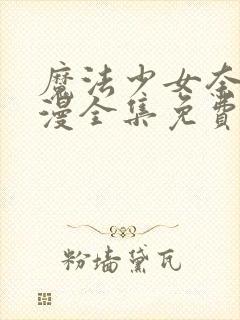 魔法少女奈
漫全集免费
粉墙黛瓦